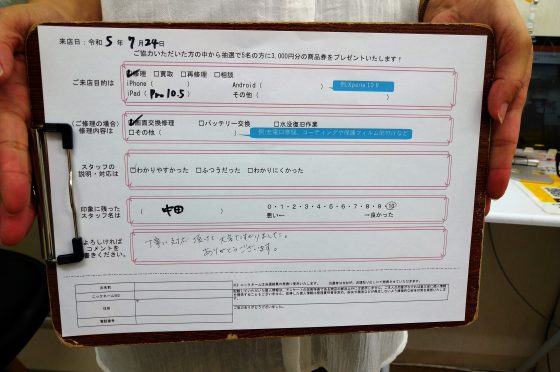 来店日：令和 5 年 7 月 24日
ご協力いただいた方の中から抽選で5名の方に3,000円分の商品券をプレゼントいたします！
ご来店目的は
修理 □買取 □再修理 □相談
iPhone（ ） Android（ ） 例:Xperia 10 Ⅱ
iPad（ Pro 10.5 ） その他（ ）
(ご修理の場合)
修理内容は
画面交換修理 □バッテリー交換 □水没復旧作業
□その他（ ） 例)充電口修理、コーティングや保護フィルム貼付けなど
スタッフの
説明・対応は
わかりやすかった □ふつうだった □わかりにくかった
印象に残った
スタッフ名は
（ 田 ）
0・1・2・3・4・5・6・7・8・9・10
悪い← →良かった
よろしければ
コメントを
お書きください。
丁寧に対応 頂けて 大変助かりました。
ありがとうございます。
お名前
ニックネームNG
住所
〒
電話番号